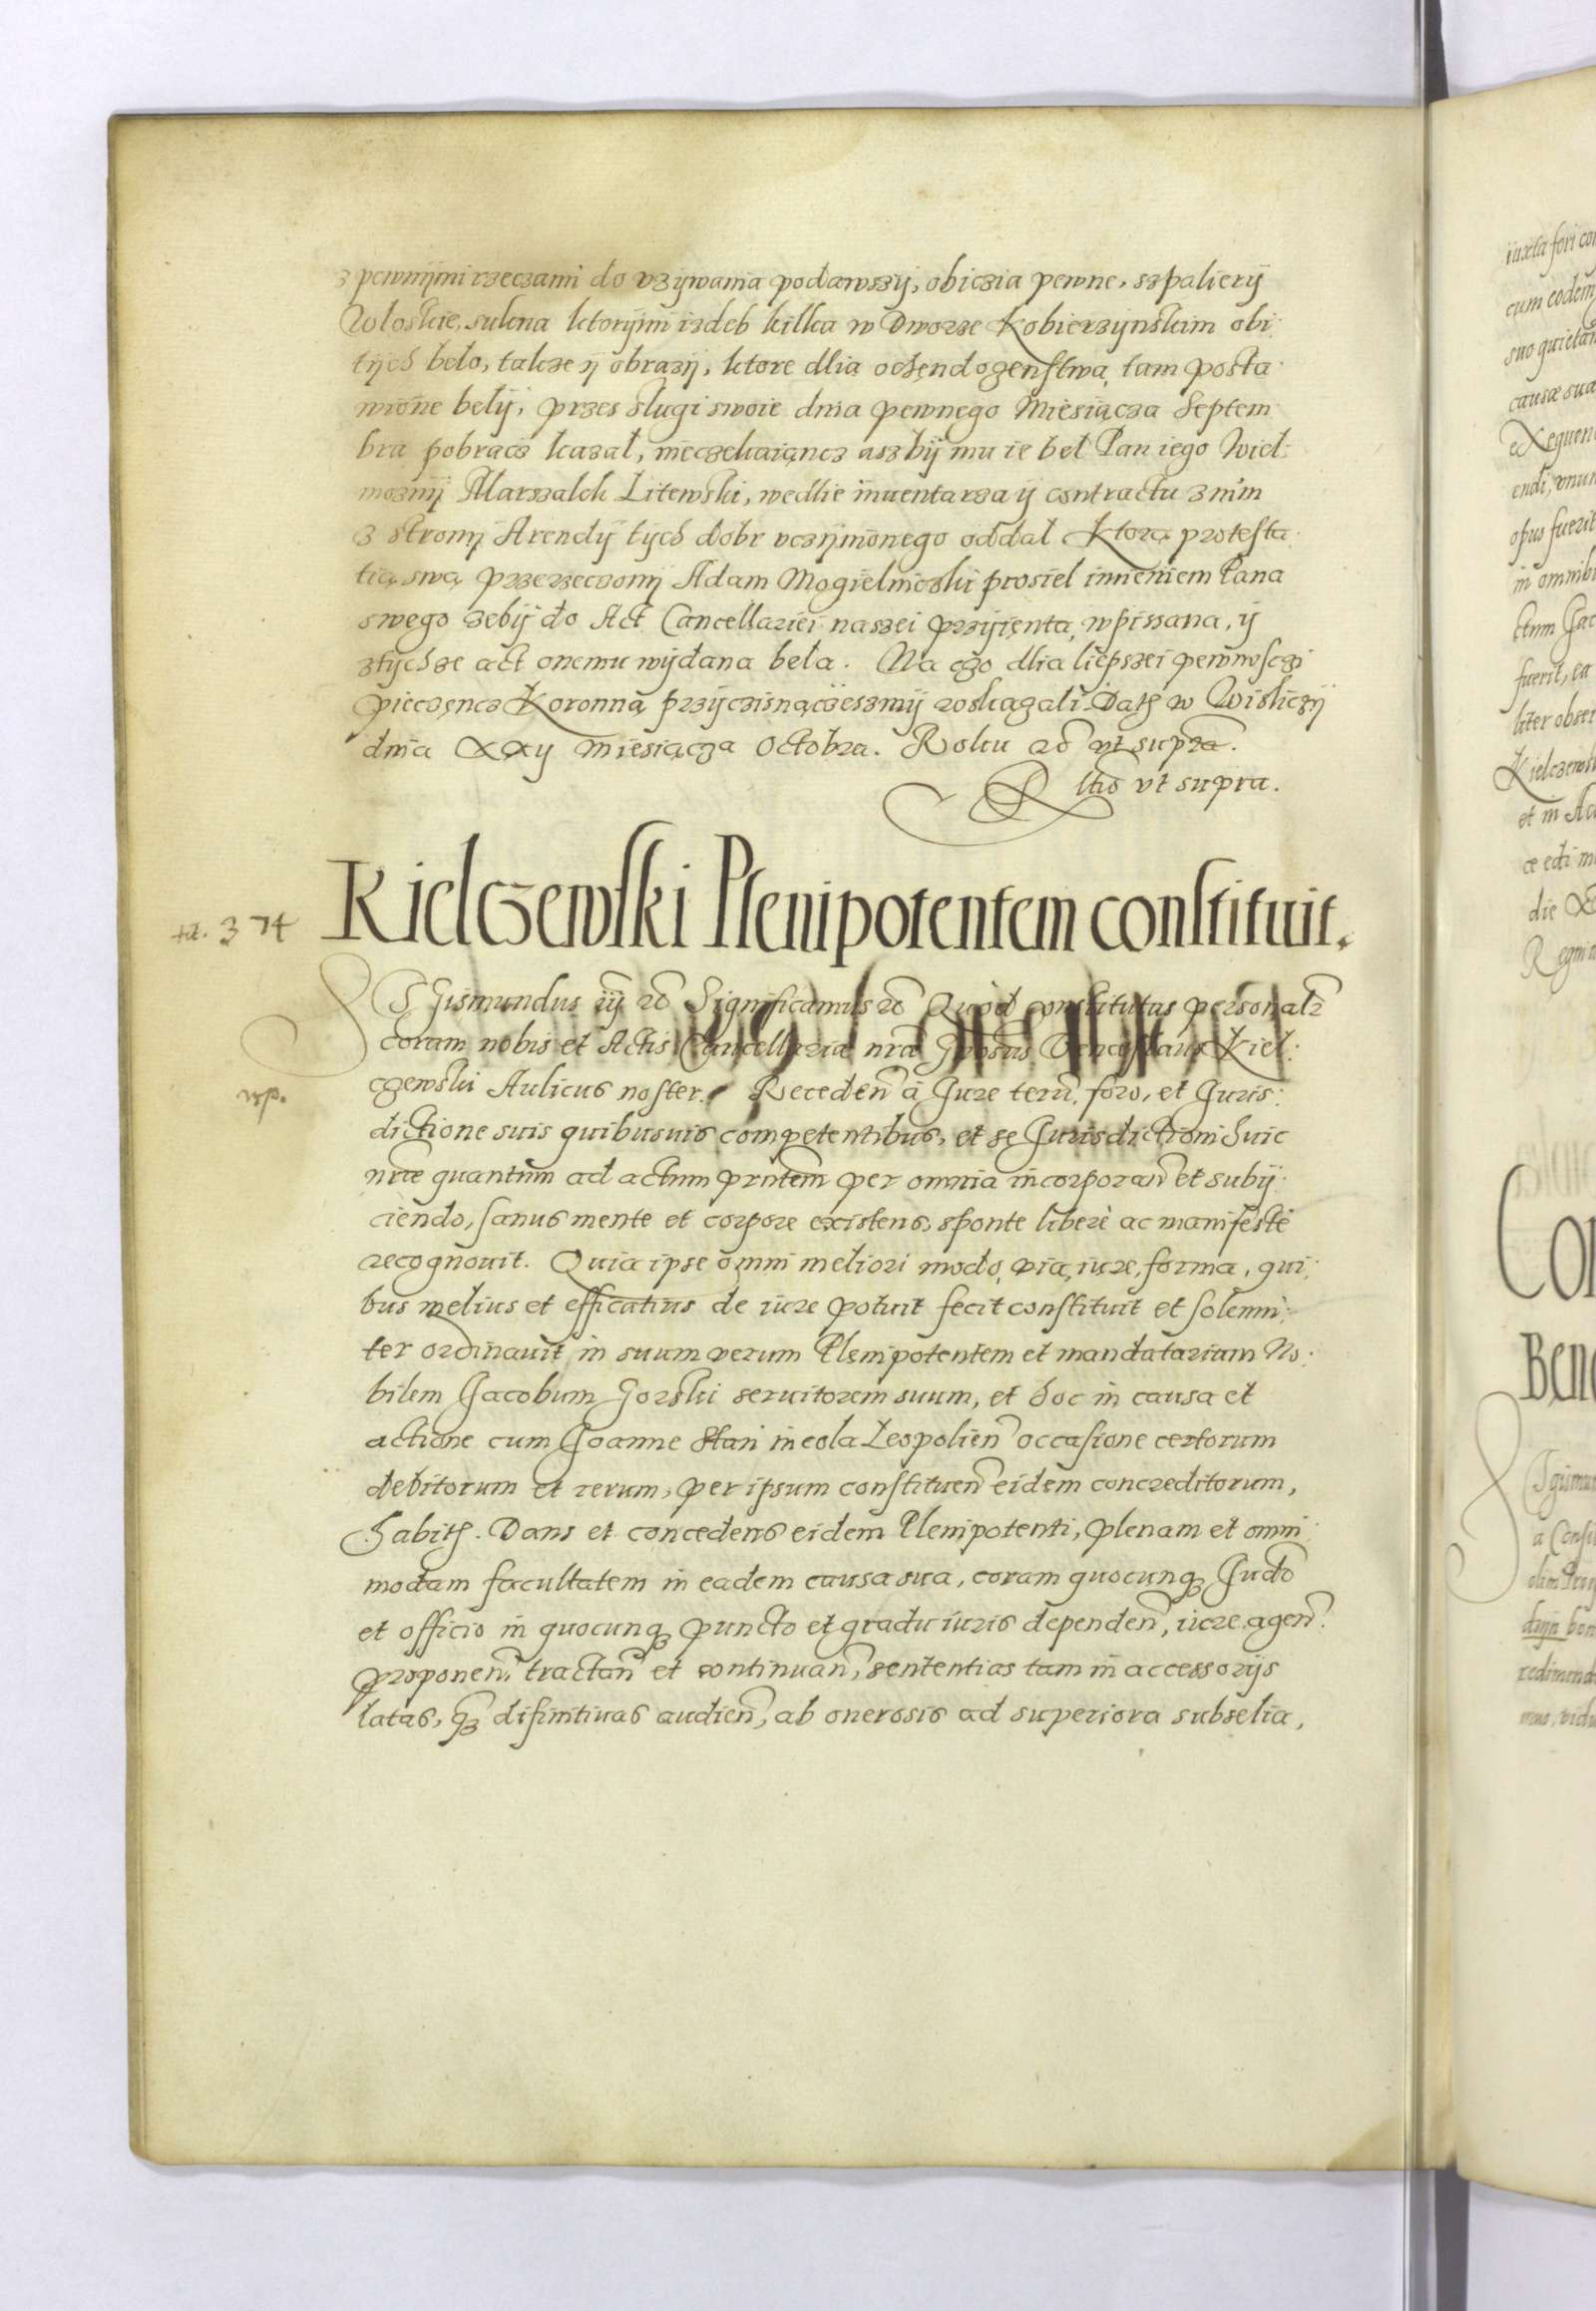 z pewnÿmi rzeczami do vzÿwania podawszÿ, obiczia pewne, szpalierÿ
Wloskie, sukna ktorÿmi izdeb kilka w Dworze Kobierzÿnskim obi:
tÿch belo, takze ÿ obrazÿ, ktore dlia ochędozenstwa, tam posta:
wione belÿ, przes slugi swoie dnia pewnego Miesiącza Septem
bra pobracz kazal, nieczekaiąncz aszbÿ mu ie bel Pan iego Wiel:
moznÿ Marszalek Litewski, wedlie inuentarza ÿ contractu z nim
z stronÿ Arendÿ tÿch dobr vczÿnionego oddal Ktorą protesta:
tią swą przerzeczonÿ Adam Mogielniczki prosiel imieniem Pana
swego zebÿ do Act Cancellariei naszei przÿięnta, wpissana, ÿ
z tÿchze act onemu wÿdana bela. Na czo dlia liepszei pewnosczi
pieczęncz Koronną przÿczisnącz iesmÿ roskazali. Dat w Wisliczÿ
dnia XXÿ miesiącza Octobra. Roku rc vt supra.
Rltio vt supra.
Kielczewski Plenipotentem constituit.
ta. 374
Sigismundus iÿ rc Significamus rc Quod constitutus personalr
coram nobis et Actis Cancellariæ nræ Gnosus Venceslaus Kiel:
wp.
czewski Aulicus noster. Receden a Jure terrū, foro, et Juris:
dictione suis quibusuis competentibus, et se Jurisdictioni huic
nræ quantum ad actum pntem per omnia incorporan et subÿ:
ciendo, sanus mente et corpore existens, sponte liberè ac manifestè
recognouit. Quia ipse omni meliori modo, via, iure, forma, qui:
bus melius et efficatius de iure potuit fecit constituit et solemni:
ter ordinauit in suum verum Plenipotentem et mandatarium No:
bilem Jacobum Gorski seruitorem suum, et hoc in causa et
actione cum Joanne Stan incola Leopolien occasione certorum
debitorum et rerum, per ipsum constituen eidem concreditorum,
habit. Dans et concedens eidem Plenipotenti, plenam et omni:
modam facultatem in eadem causa sua, coram quocunq Judo
et officio in quocunq puncto et gradu iuris dependen, iure agen
proponen tractan et continuan, sententias tam in accessorÿs
latas, q difinitiuas audien, ab onerosis ad superiora subselia,